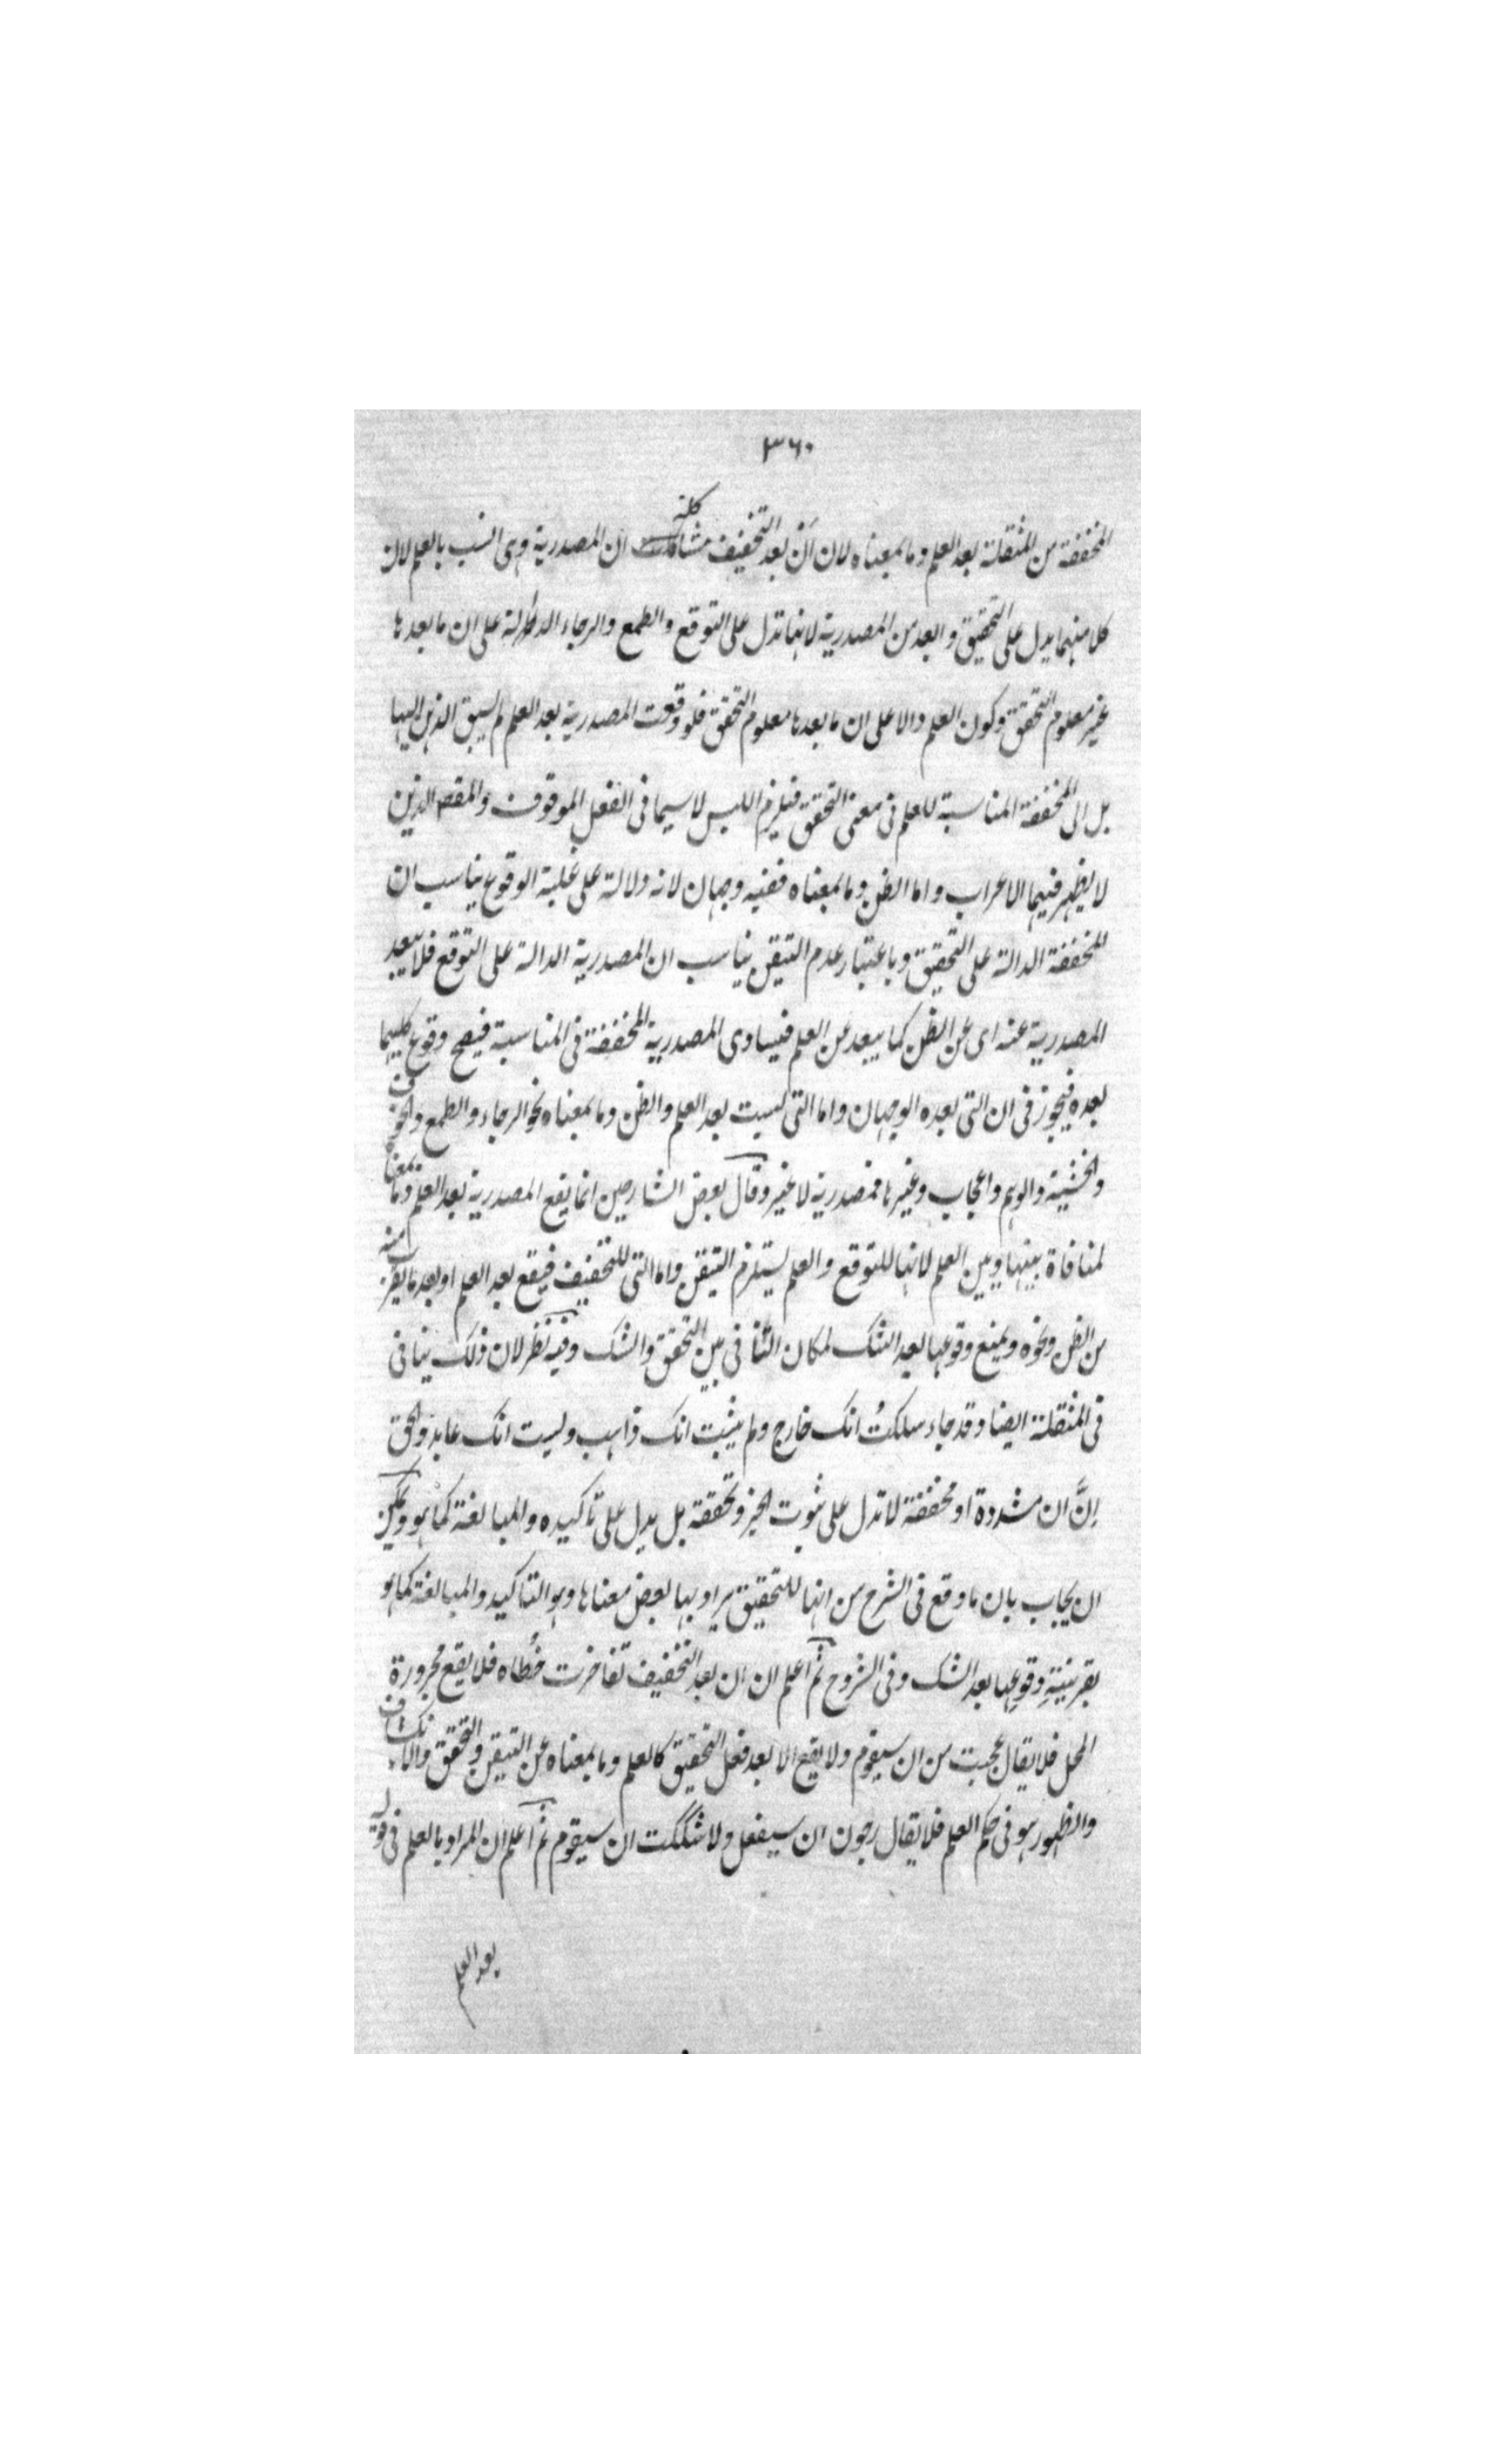 ٣٦٠
المخففة من المثقلة بعد العلم وما بمعناه لان اَنْ بعد التخفيف مشاكلة كلمة ان المصدرية وهى انسب بالعلم لان
كلا منهما يدل على التحقيق وابعد من المصدرية لانها تدل على التوقع والطمع والرجاء الدالة على ان ما بعدها
غير معلوم التحقق وكون العلم دالا على ان ما بعدها معلوم التحقق فلو وقعت المصدرية بعد العلم لم يسبق الذهن اليها
بل الى المخففة المناسبة للعلم فى معنى التحقق فيلزم اللبس لاسيما فى الفعل الموقوف والمقصور الذين
لا يظهر فيهما الاعراب واما الظن وما بمعناه ففيه وجهان لانه دلالة على غلبة الوقوع يناسب ان
المخففة الدالة على التحقيق وباعتبار عدم التيقن يناسب ان المصدرية الدالة على التوقع فلا يبعد
المصدرية عنه اى عن الظن كما يبعد عن العلم فيساوى المصدرية المخففة فى المناسبة فيصح وقوع كليهما
بعده فيجوز فى ان التى بعده الوجهان واما التى ليست بعد العلم والظن وما بمعناه نحو الرجاء والطمع والخوف
والخشية والوهم واعجاب وغيرها فمصدرية لا غير وقال بعض الشارحين انما يقع المصدرية بعد العلم وما بمعناه
لمنافاة بينها وبين العلم لانها للتوقع والعلم يستلزم التيقن واما التى للتخفيف فيقع بعد العلم او بعد ما يقرب منه
من الظن ونحوه ويمنع وقوعها بعد الشك لمكان التنافى بين التحقق والشك وفيه نظر لان ذلك ينافى
فى المثقلة ايضا وقد جاء سلكتُ انك خارج ولم يثبت انك ذاهب وليست انك عابد والحق
اِنَّ ان مشددة او مخففة لا تدل على ثبوت الخبر وتحققه بل يدل على تأكيده والمبالغة كما هو ويمكن
ان يجاب بان ما وقع فى الشرح من انها للتحقيق يراد بها بعض معناها وهو التاكيد والمبالغة كما هو
بقرينية وقوعها بعد الشك وفى الشروح ثم اعلم ان ان بعد التخفيف تقاخرت خُطاه فلا يقع مجرورة
المحل فلا يقال عجبت من ان سيقوم ولا يقع الا بعد فعل التحقيق كالعلم وما بمعناه عن التيقن والتحقق والانكشاف
والظهور هو فى حكم العلم فلا يقال رجون ان سيفعل ولا شككت ان سيقوم ثم اعلم ان المراد بالعلم فى قوله
بعد العلم